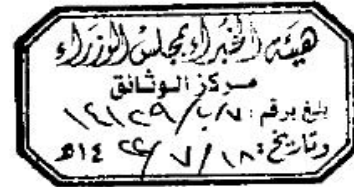 هيئة الخبراء بمجلس الوزراء
مركز الوثائق
بلغ برقم: ٧/ب/١٢١٢٩
وتاريخ: ١٨/٧/١٤٢٢هـ